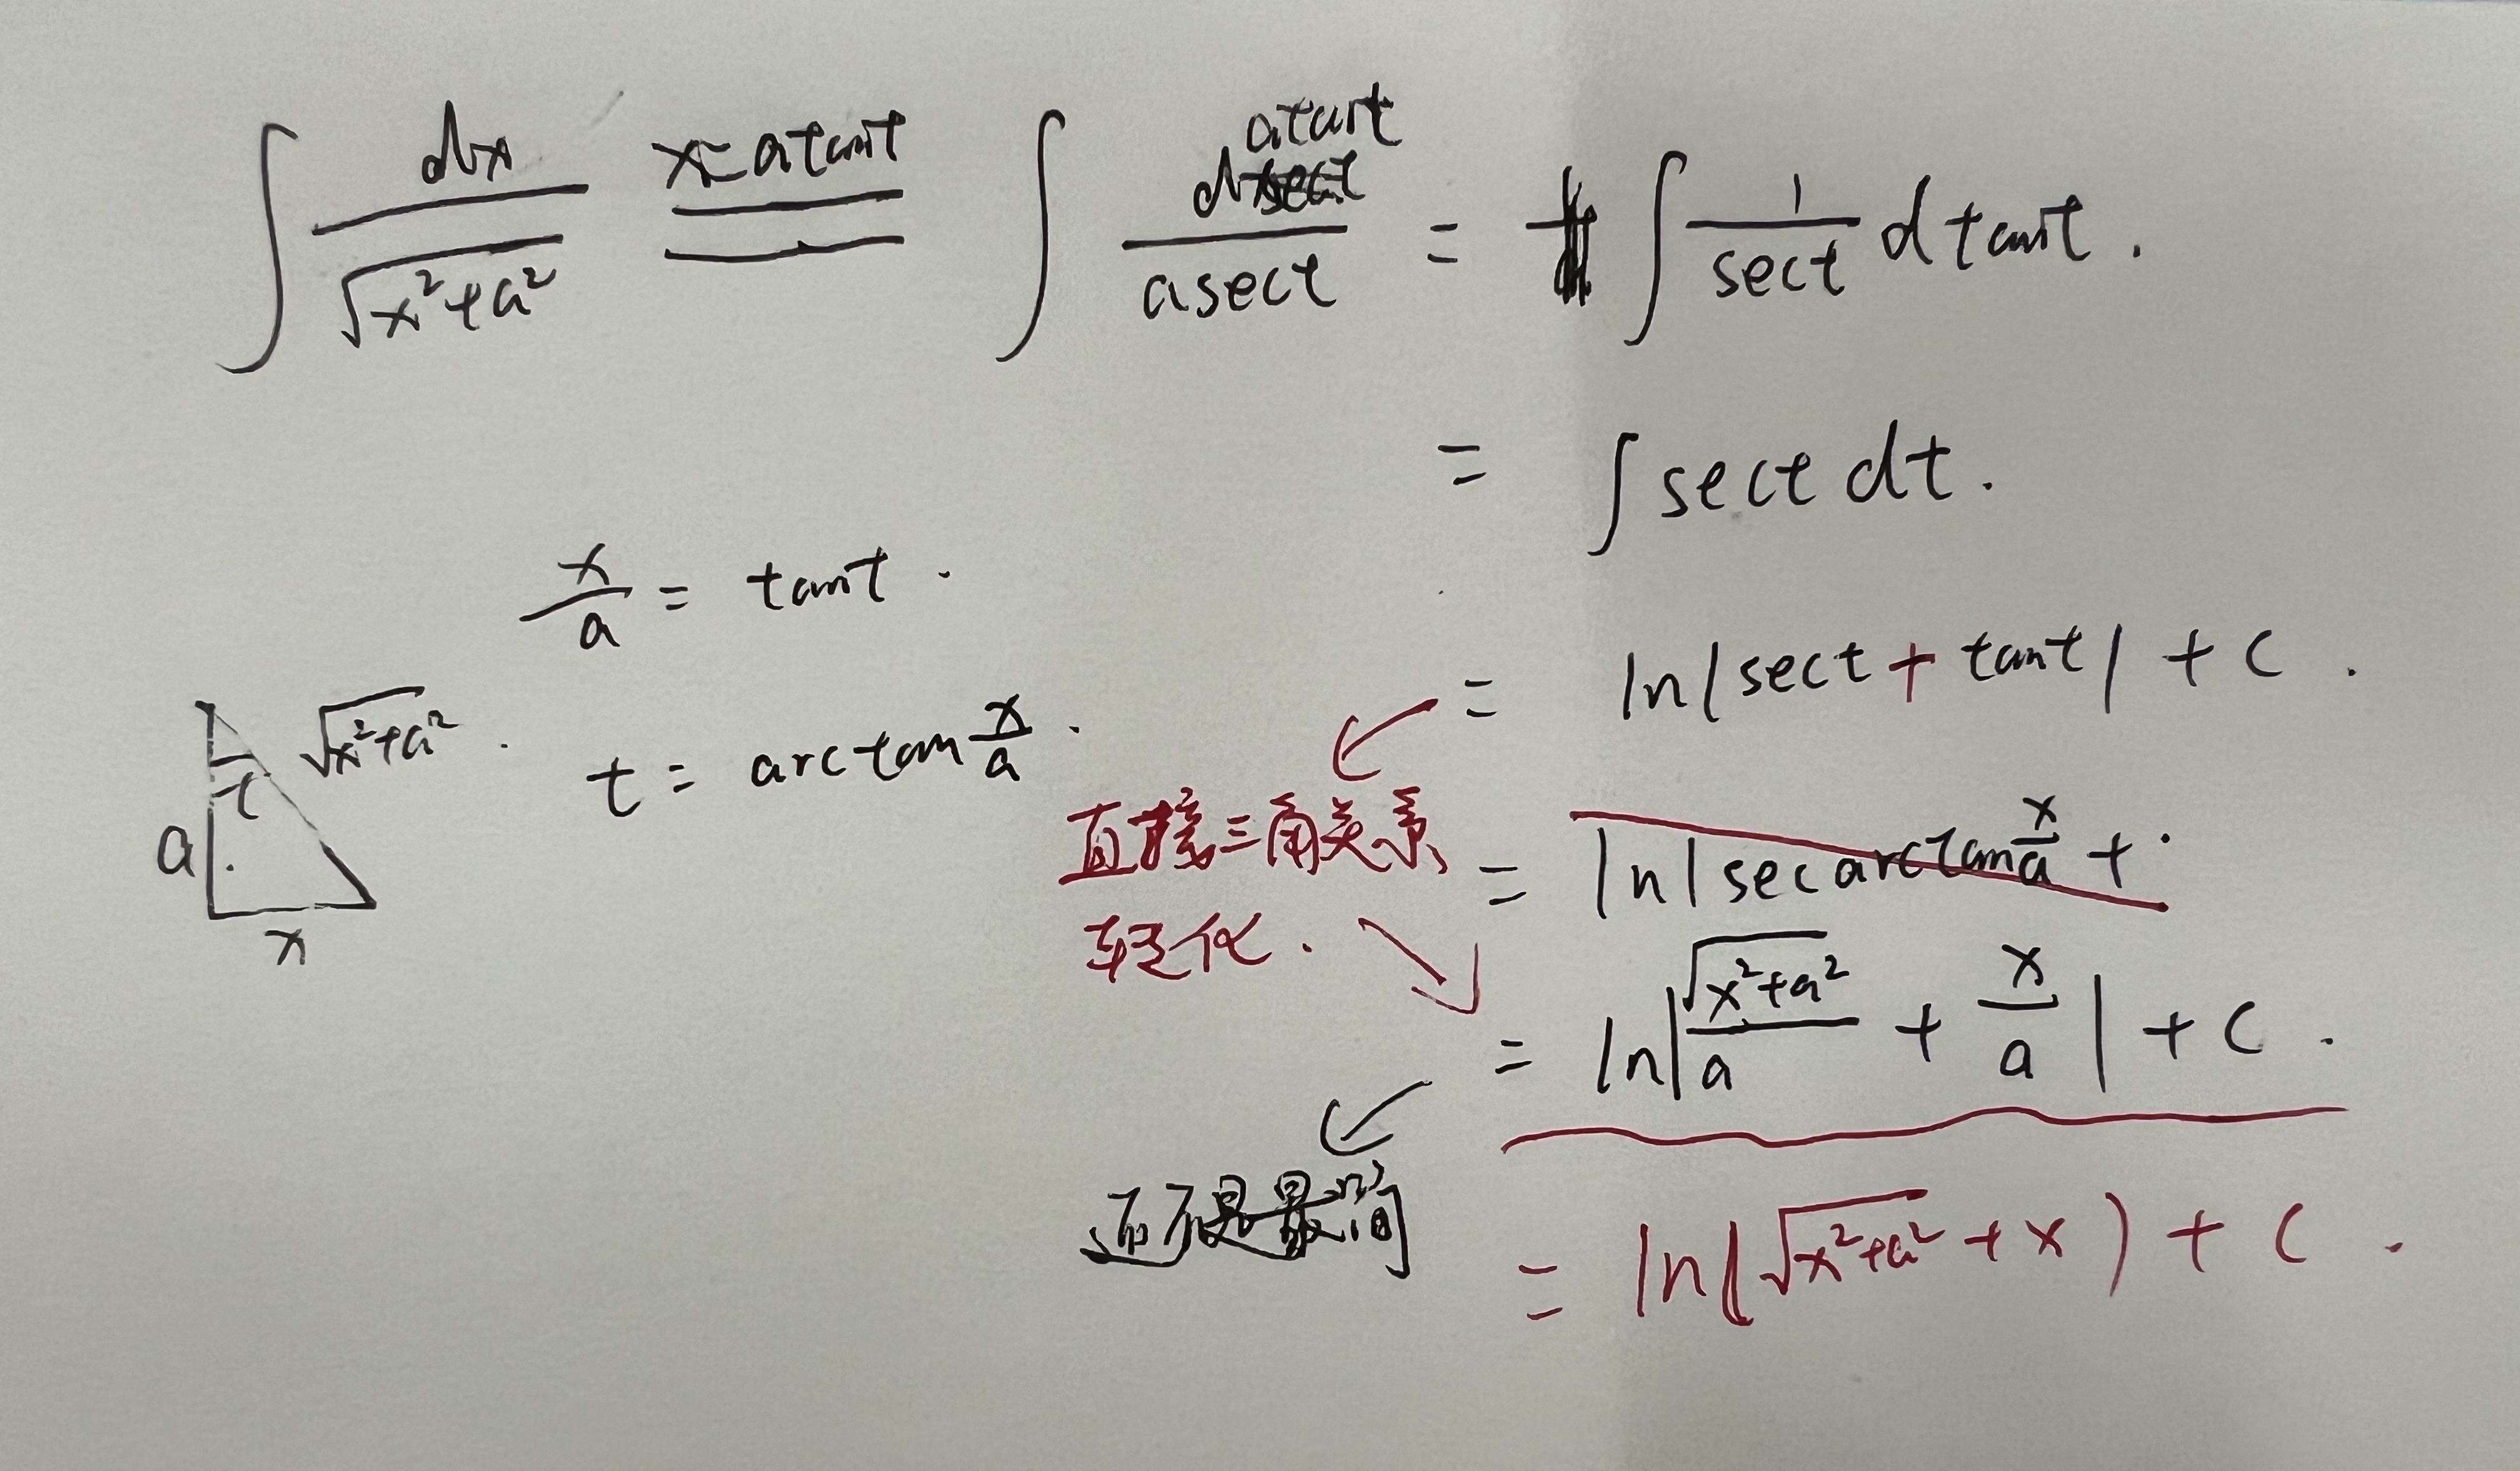 ∫ dx/√(x²+a²) x=atant ∫ datant/asect = ∫ 1/sect dtant.
= ∫ sect dt.
x/a = tant.
= ln|sect + tant| + C.
√(x²+a²). t = arctan x/a.
t
a
x
直接三角关系
转化.
= ln|secarctan x/a +
= ln|√(x²+a²)/a + x/a| + C.
还不是最简
= ln(√(x²+a²) + x) + C.